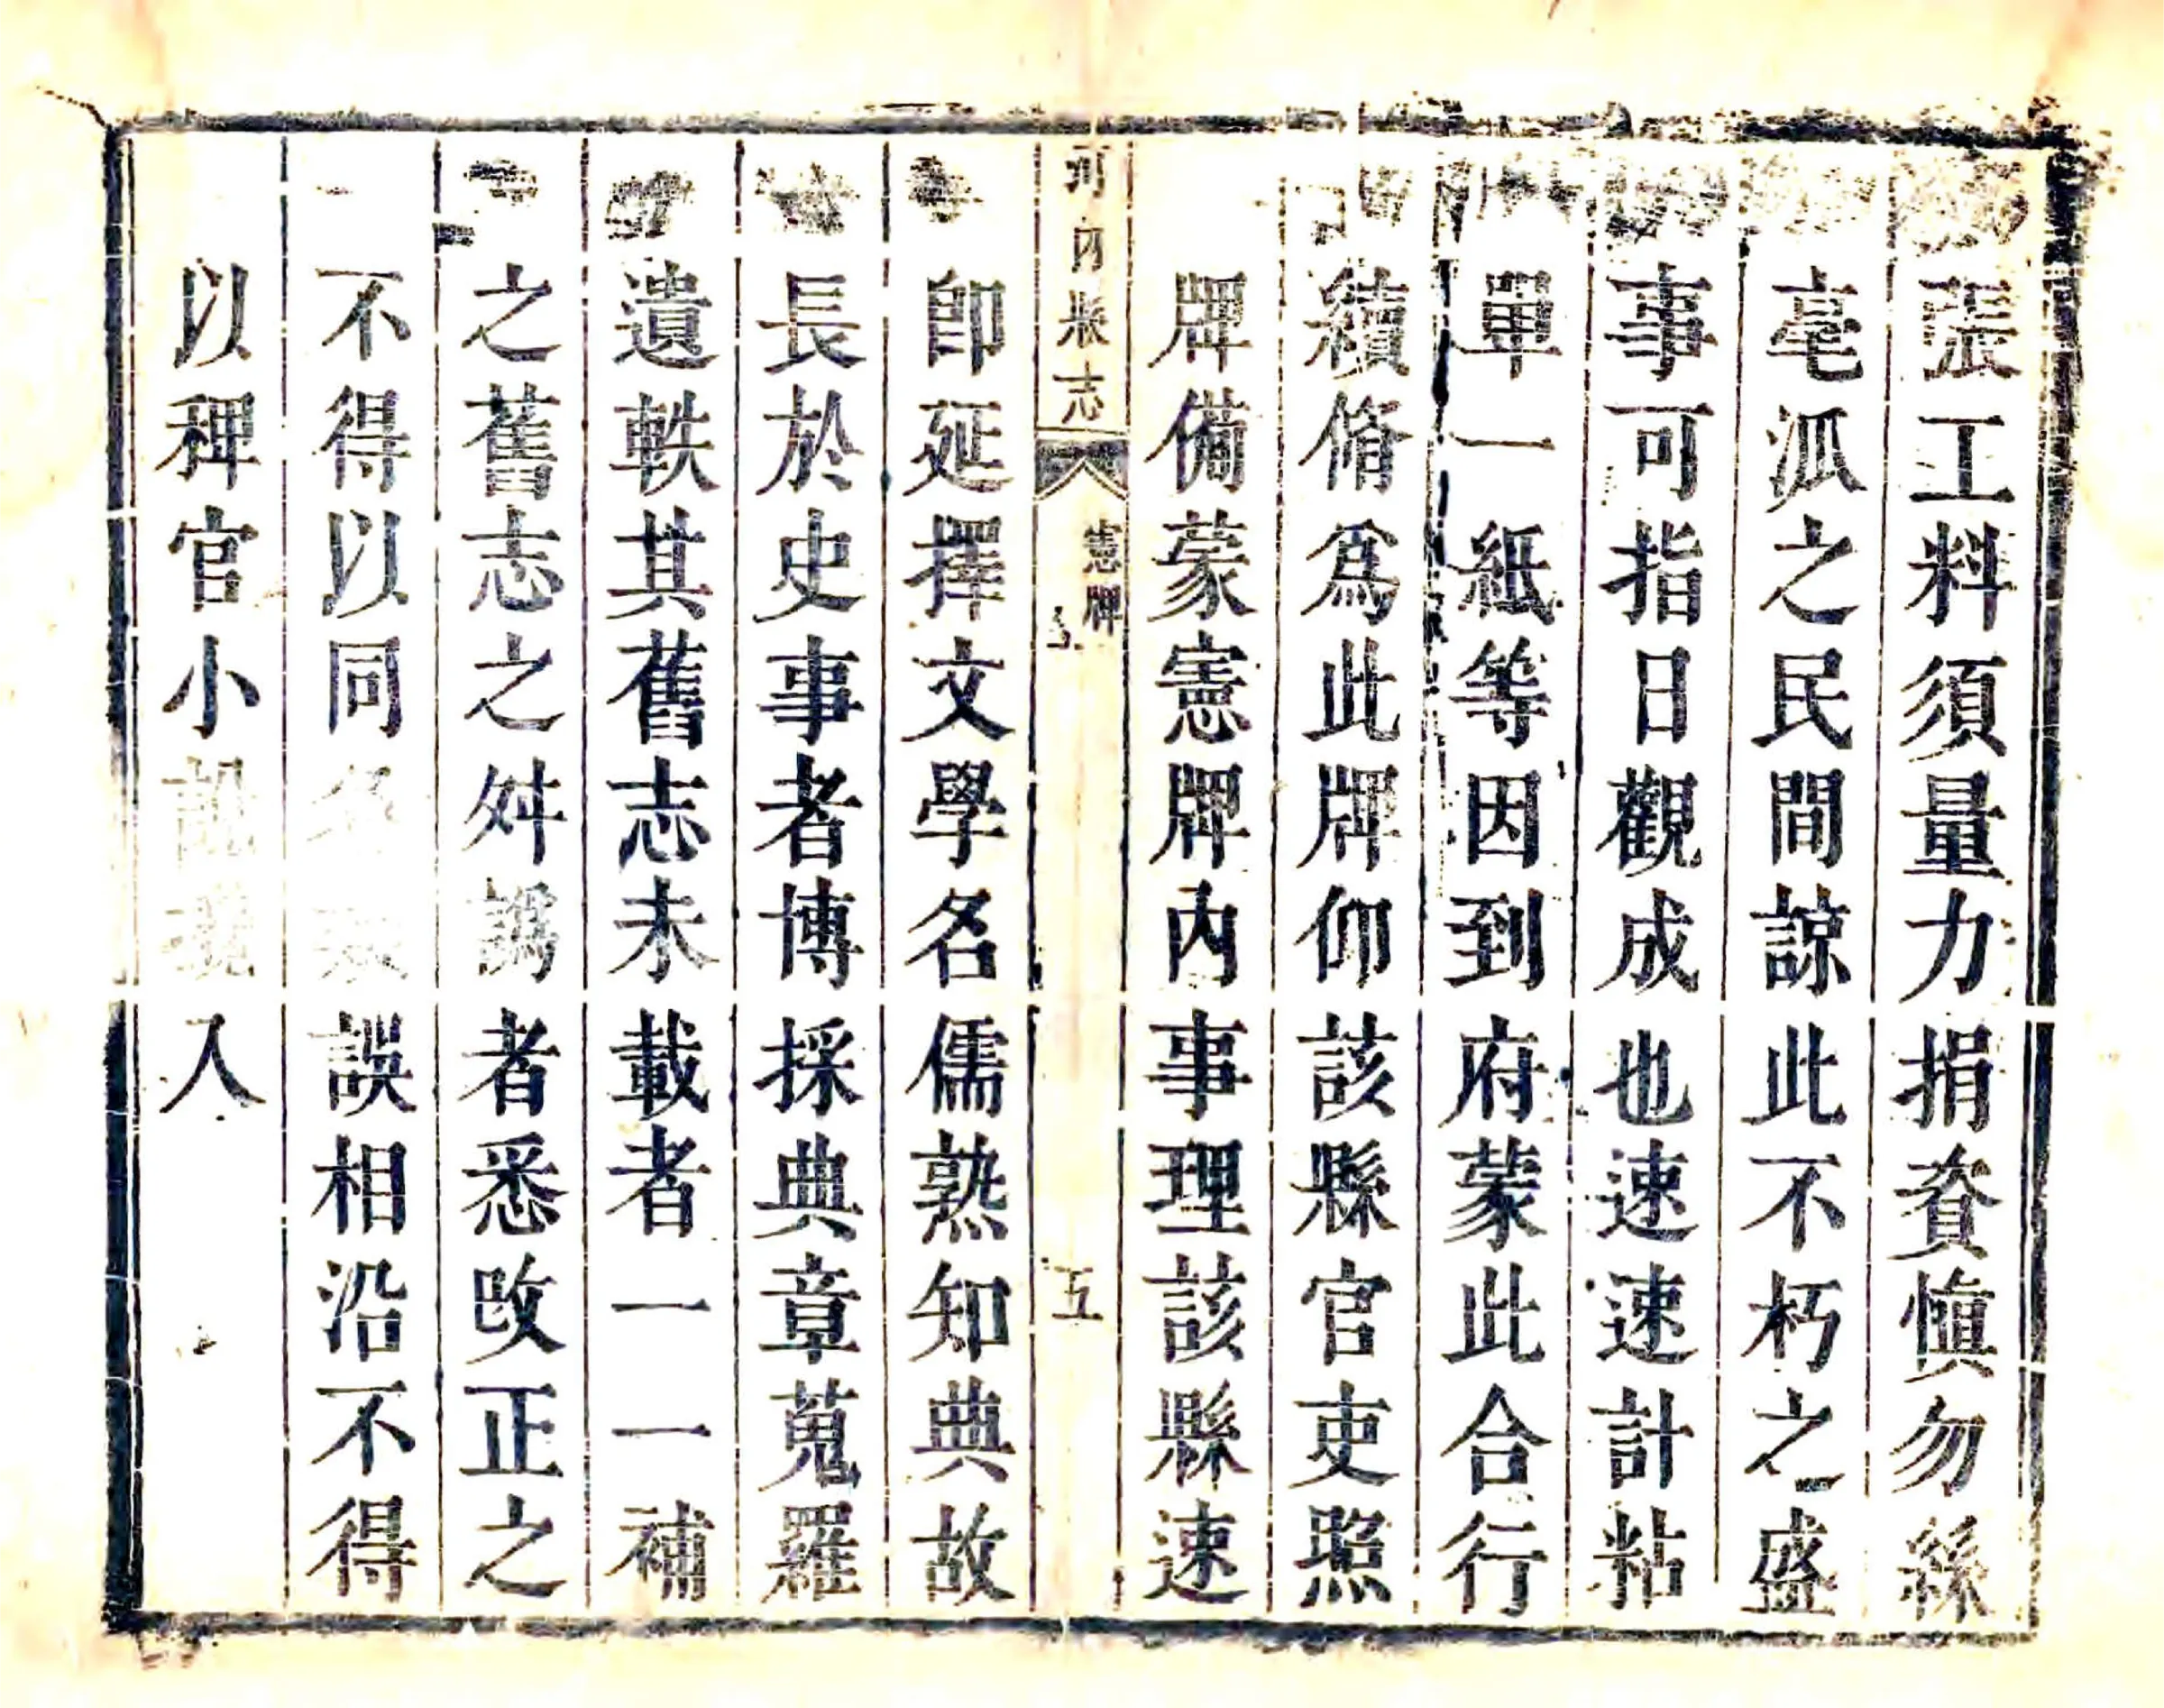 張工料須量力捐資愼勿絲
毫泒之民間諒此不朽之盛
事可指日觀成也速速計粘
單一紙等因到府蒙此合行
續脩爲此牌仰該縣官吏照
牌備蒙憲牌内事理該縣速
河内縣志
憲牌
五
卽延擇文學名儒熟知典故
長於史事者博採典章蒐羅
遺軼其舊志未載者一一補
之舊志之舛譌者悉改正之
不得以同誤相沿不得
以稗官小說混入